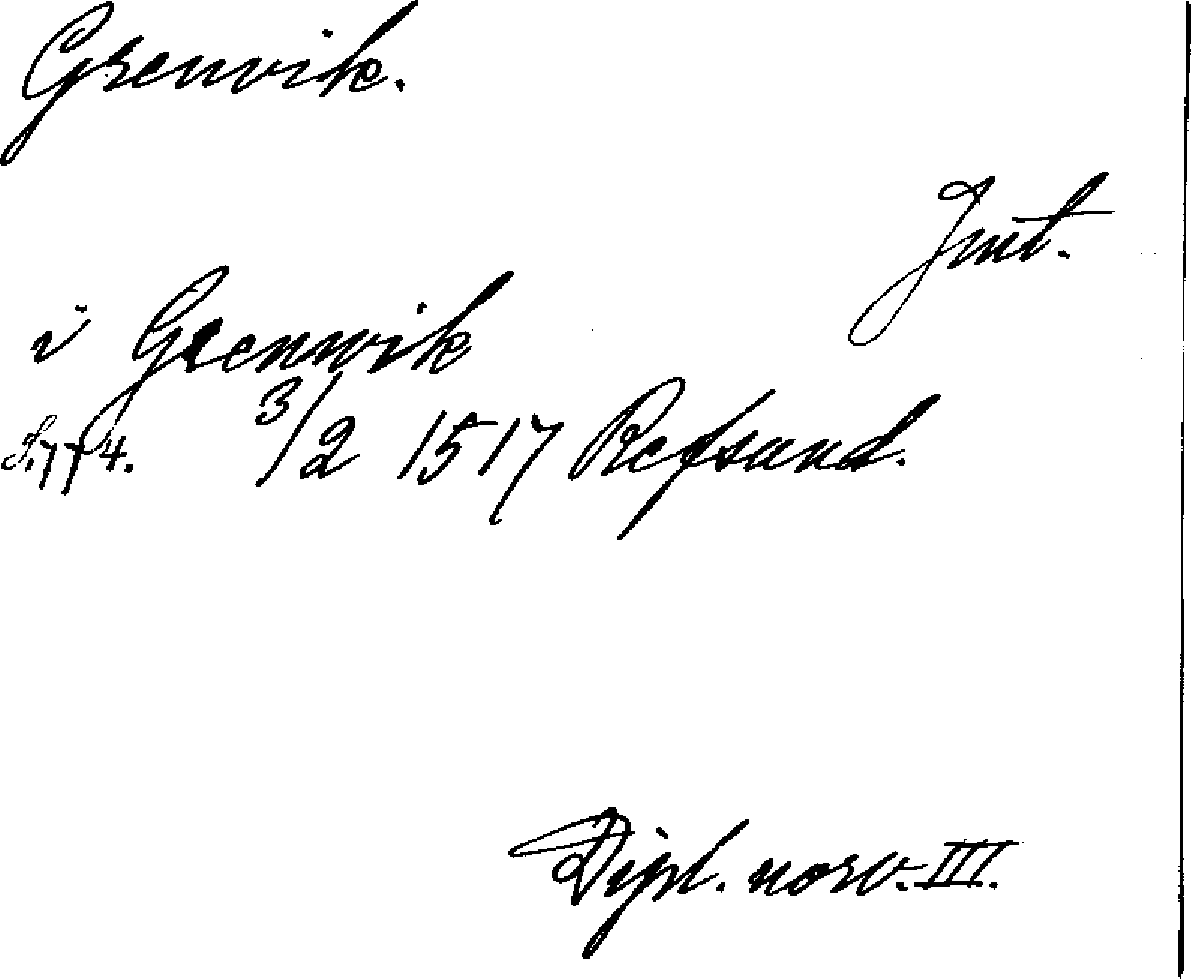 Grenvik.
Jmt.
i Grenwik
S. 774. 3/2 1517 Refsund.
Dipl. norv. III.